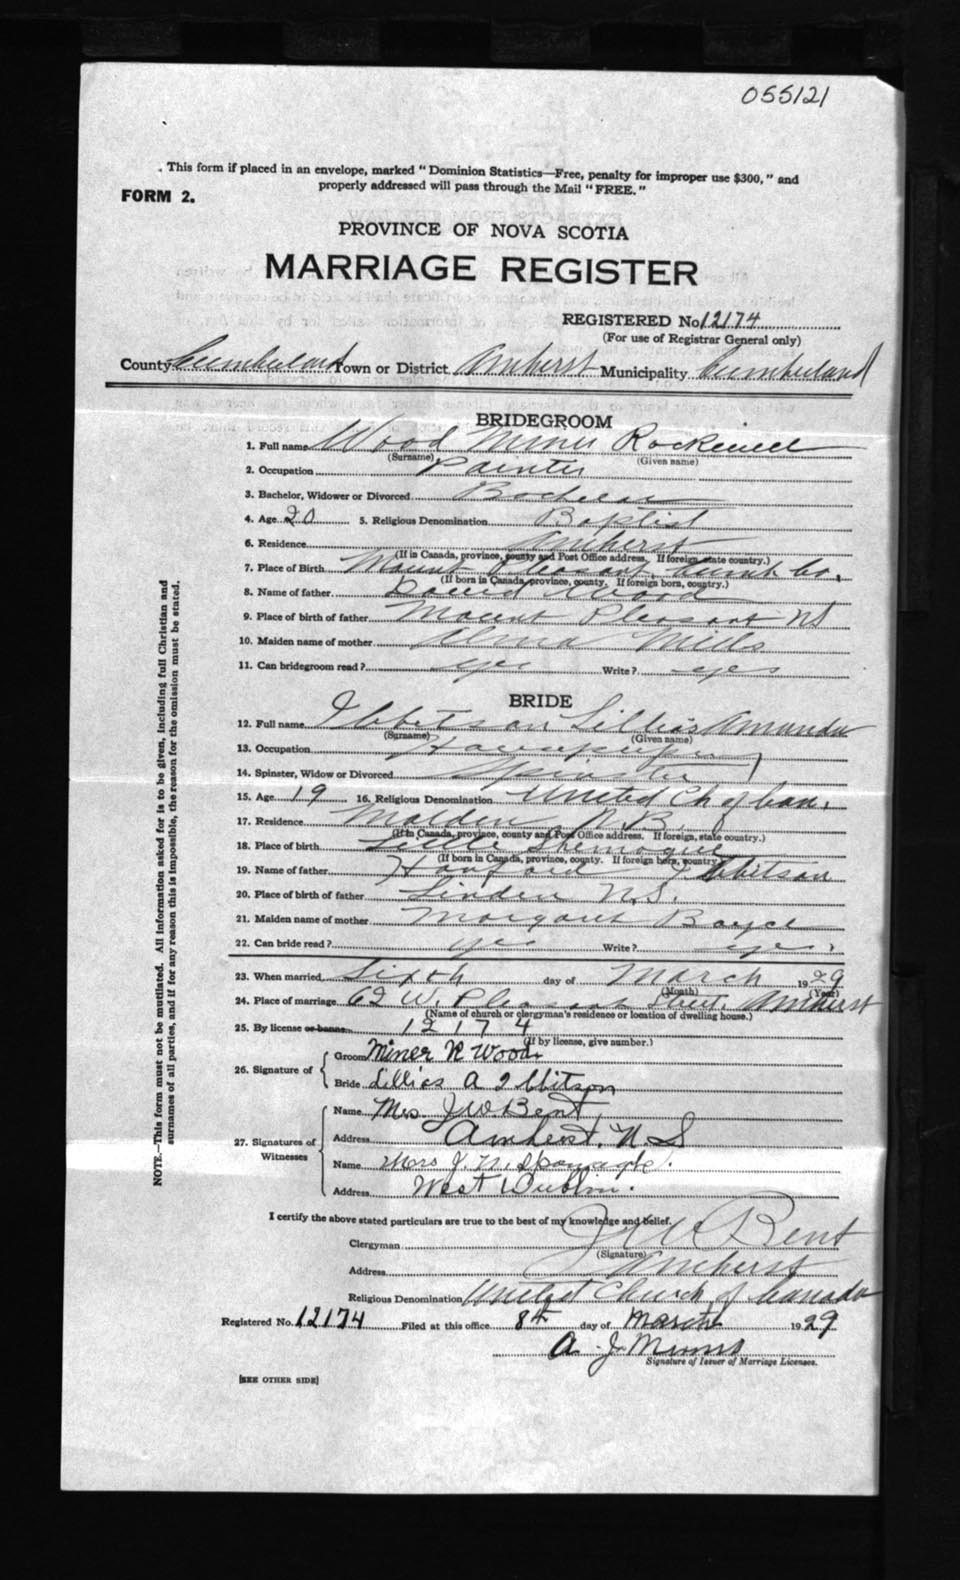 055121
. This form if placed in an envelope, marked "Dominion Statistics—Free, penalty for improper use $300," and
properly addressed will pass through the Mail "FREE."
FORM 2.
PROVINCE OF NOVA SCOTIA
MARRIAGE REGISTER
REGISTERED No. 12174
(For use of Registrar General only)
County Cumberland Town or District Amherst Municipality Cumberland
BRIDEGROOM
1. Full name Wood Miner Rockwell
(Surname) (Given name)
2. Occupation Painter
3. Bachelor, Widower or Divorced Bachelor
4. Age 20 5. Religious Denomination Baptist
6. Residence Amherst
(If in Canada, province, county and Post Office address. If foreign, state country.)
7. Place of Birth Mount Pleasant, Cumb Co,
(If born in Canada, province, county. If foreign born, country.)
8. Name of father David Wood
9. Place of birth of father Mount Pleasant NS
10. Maiden name of mother Alma Mills
11. Can bridegroom read? yes Write? yes
BRIDE
12. Full name Ibbetson Lillias Amanda
(Surname) (Given name)
13. Occupation Housekeeper
14. Spinster, Widow or Divorced Spinster
15. Age 19 16. Religious Denomination United Ch of Can.
17. Residence Malden N.B.
(If in Canada, province, county and Post Office address. If foreign, state country.)
18. Place of birth Little Shemogue
(If born in Canada, province, county. If foreign born, country.)
19. Name of father Hanford Ibbitson
20. Place of birth of father Linden N.S.
21. Maiden name of mother Margaret Boyce
22. Can bride read? yes Write? yes.
23. When married Sixth day of March 1929
(Month) (Year)
24. Place of marriage 62 W. Pleasant Street. Amherst
(Name of church or clergyman's residence or location of dwelling house.)
25. By license or banns 12174
(If by license, give number.)
26. Signature of Groom Miner R Wood
Bride Lillias A Ibbitson
27. Signatures of Witnesses
Name Mrs. J W Bent
Address Amherst, N.S
Name Mrs J. N.
Address West Dublin.
I certify the above stated particulars are true to the best of my knowledge and belief.
Clergyman J W Bent
(Signature)
Address Amherst
Religious Denomination United Church of Canada
Registered No. 12174 Filed at this office 8th day of March 1929
A. J.
Signature of Issuer of Marriage Licenses.
[SEE OTHER SIDE]
NOTE.—This form must not be mutilated. All information asked for is to be given, including full Christian and
surnames of all parties, and if for any reason this is impossible, the reason for the omission must be stated.